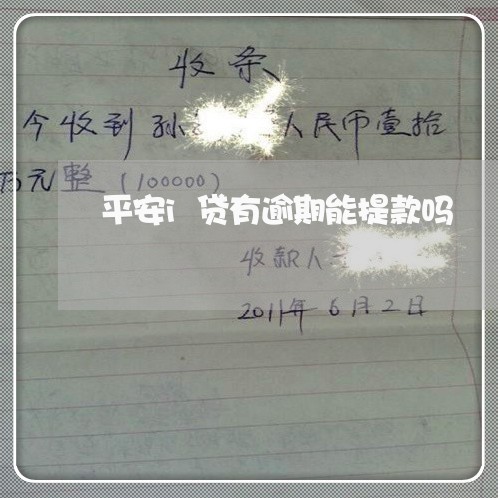 收条
今收到孙 人民币壹拾
万元整(100000)
平安i贷有逾期能提款吗
收款人
2011年6月2日